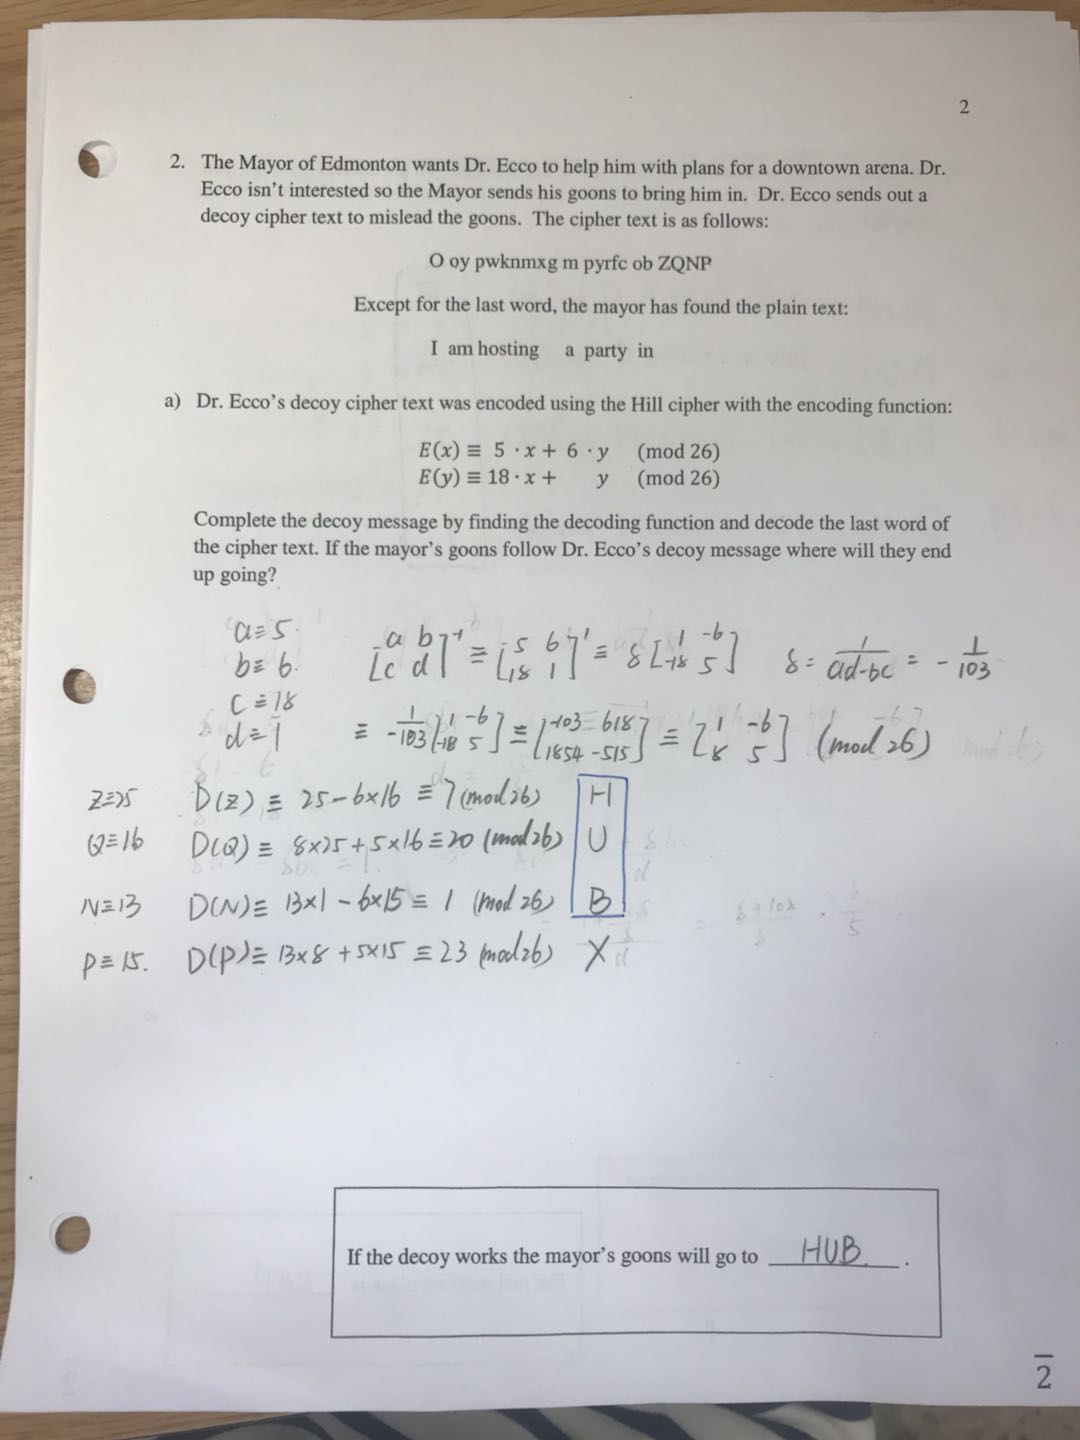 2
2. The Mayor of Edmonton wants Dr. Ecco to help him with plans for a downtown arena. Dr.
Ecco isn't interested so the Mayor sends his goons to bring him in. Dr. Ecco sends out a
decoy cipher text to mislead the goons. The cipher text is as follows:
O oy pwknmxg m pyrfc ob ZQNP
Except for the last word, the mayor has found the plain text:
I am hosting a party in
a) Dr. Ecco's decoy cipher text was encoded using the Hill cipher with the encoding function:
E(x) ≡ 5 · x + 6 · y (mod 26)
E(y) ≡ 18 · x + y (mod 26)
Complete the decoy message by finding the decoding function and decode the last word of
the cipher text. If the mayor's goons follow Dr. Ecco's decoy message where will they end
up going?
a≡5.
b≡6.
c≡18
d≡1
[a b
c d]⁻¹ ≡ [5 6
18 1]⁻¹ ≡ δ[1 -6
-18 5] δ = 1/(ad-bc) = - 1/103
≡ -1/103 [1 -6
-18 5] ≡ [-103 618
1854 -515] ≡ [1 -6
8 5] (mod 26)
Z≡25 D(Z) ≡ 25-6×16 ≡ 7 (mod 26) H
Q≡16 D(Q) ≡ 8×25+5×16≡20 (mod 26) U
N≡13 D(N)≡ 13×1 - 6×15 ≡ 1 (mod 26) B
P≡15. D(P)≡ 13×8 +5×15 ≡23 (mod 26) X
If the decoy works the mayor's goons will go to HUB.
2